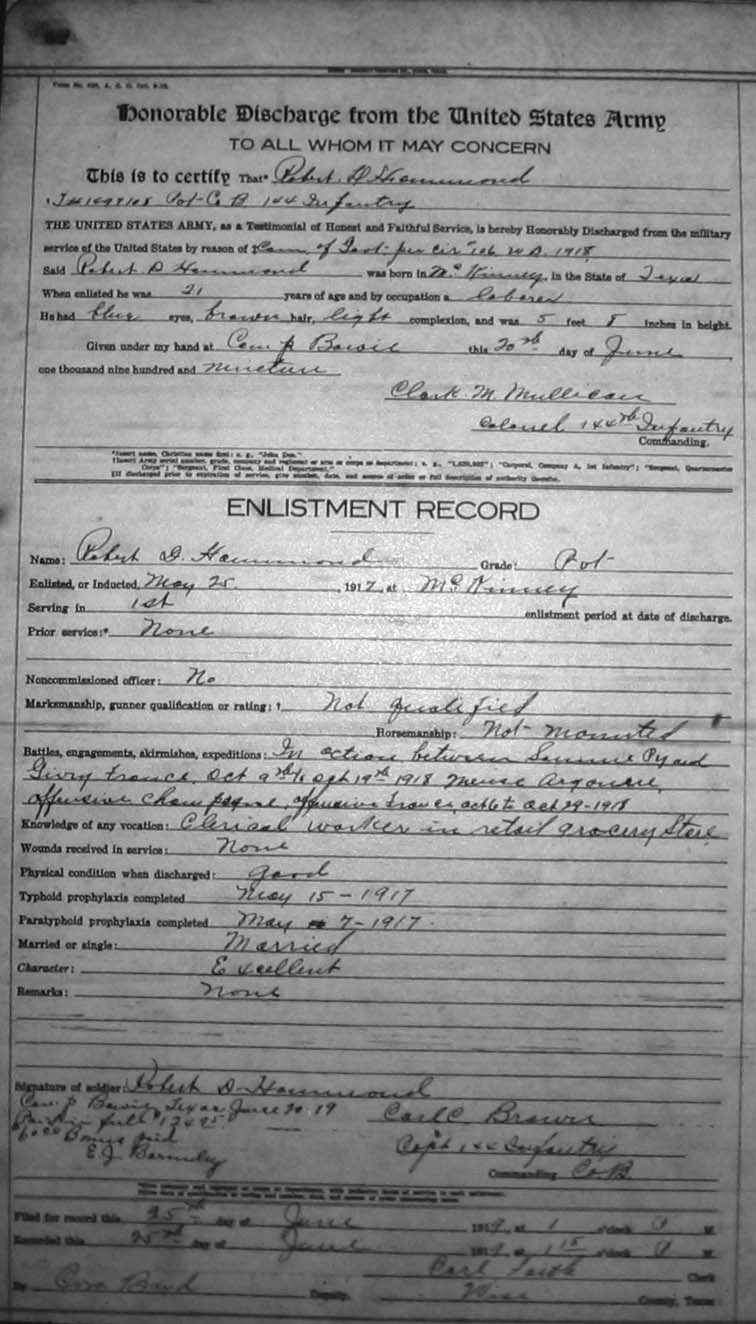 Honorable Discharge from the United States Army
TO ALL WHOM IT MAY CONCERN
This is to certify That* Robert D Hammond
Pvt Co B 144 Infantry
THE UNITED STATES ARMY, as a Testimonial of Honest and Faithful Service, is hereby Honorably Discharged from the military
service of the United States by reason of per cir 106 W.D. 1918
Said Robert D Hammond was born in McKinney, in the State of Texas
When enlisted he was 21 years of age and by occupation a laborer
He had blue eyes, brown hair, light complexion, and was 5 feet 8 inches in height.
Given under my hand at Camp Bowie this 20th day of June
one thousand nine hundred and nineteen
Clark M. Mullican
Colonel 144th Infantry
Commanding.
*Insert name, Christian name first; e. g., "John Doe."
ENLISTMENT RECORD
Name: Robert D. Hammond Grade: Pvt
Enlisted, or Inducted, May 25, 1917, at McKinney
Serving in 1st enlistment period at date of discharge.
Prior service:* None
Noncommissioned officer: No
Marksmanship, gunner qualification or rating: † Not qualified
Horsemanship: Not mounted
Battles, engagements, skirmishes, expeditions: In action between Somme Py and
Givry France, Oct 9th to Oct 19th 1918 Meuse Argonne,
offensive Champagne, offensive France, oct 6 to Oct 29-1918
Knowledge of any vocation: Clerical worker in retail grocery Store
Wounds received in service: None
Physical condition when discharged: good
Typhoid prophylaxis completed May 15-1917
Paratyphoid prophylaxis completed May 7-1917.
Married or single: Married
Character: Excellent
Remarks: None
Signature of soldier: Robert D Hammond
Camp Bowie, Texas June 20 19
Paid in full
Bonus paid
E. J.
Carl C. Brower
Capt 144 Infantry
Commanding Co B
Filed for record this 25th day of June 1919, at 1 o'clock P M.
Recorded this 25th day of June 1919, at 1 15 o'clock P M.
Carl Clerk
By Deputy. Wise County, Texas